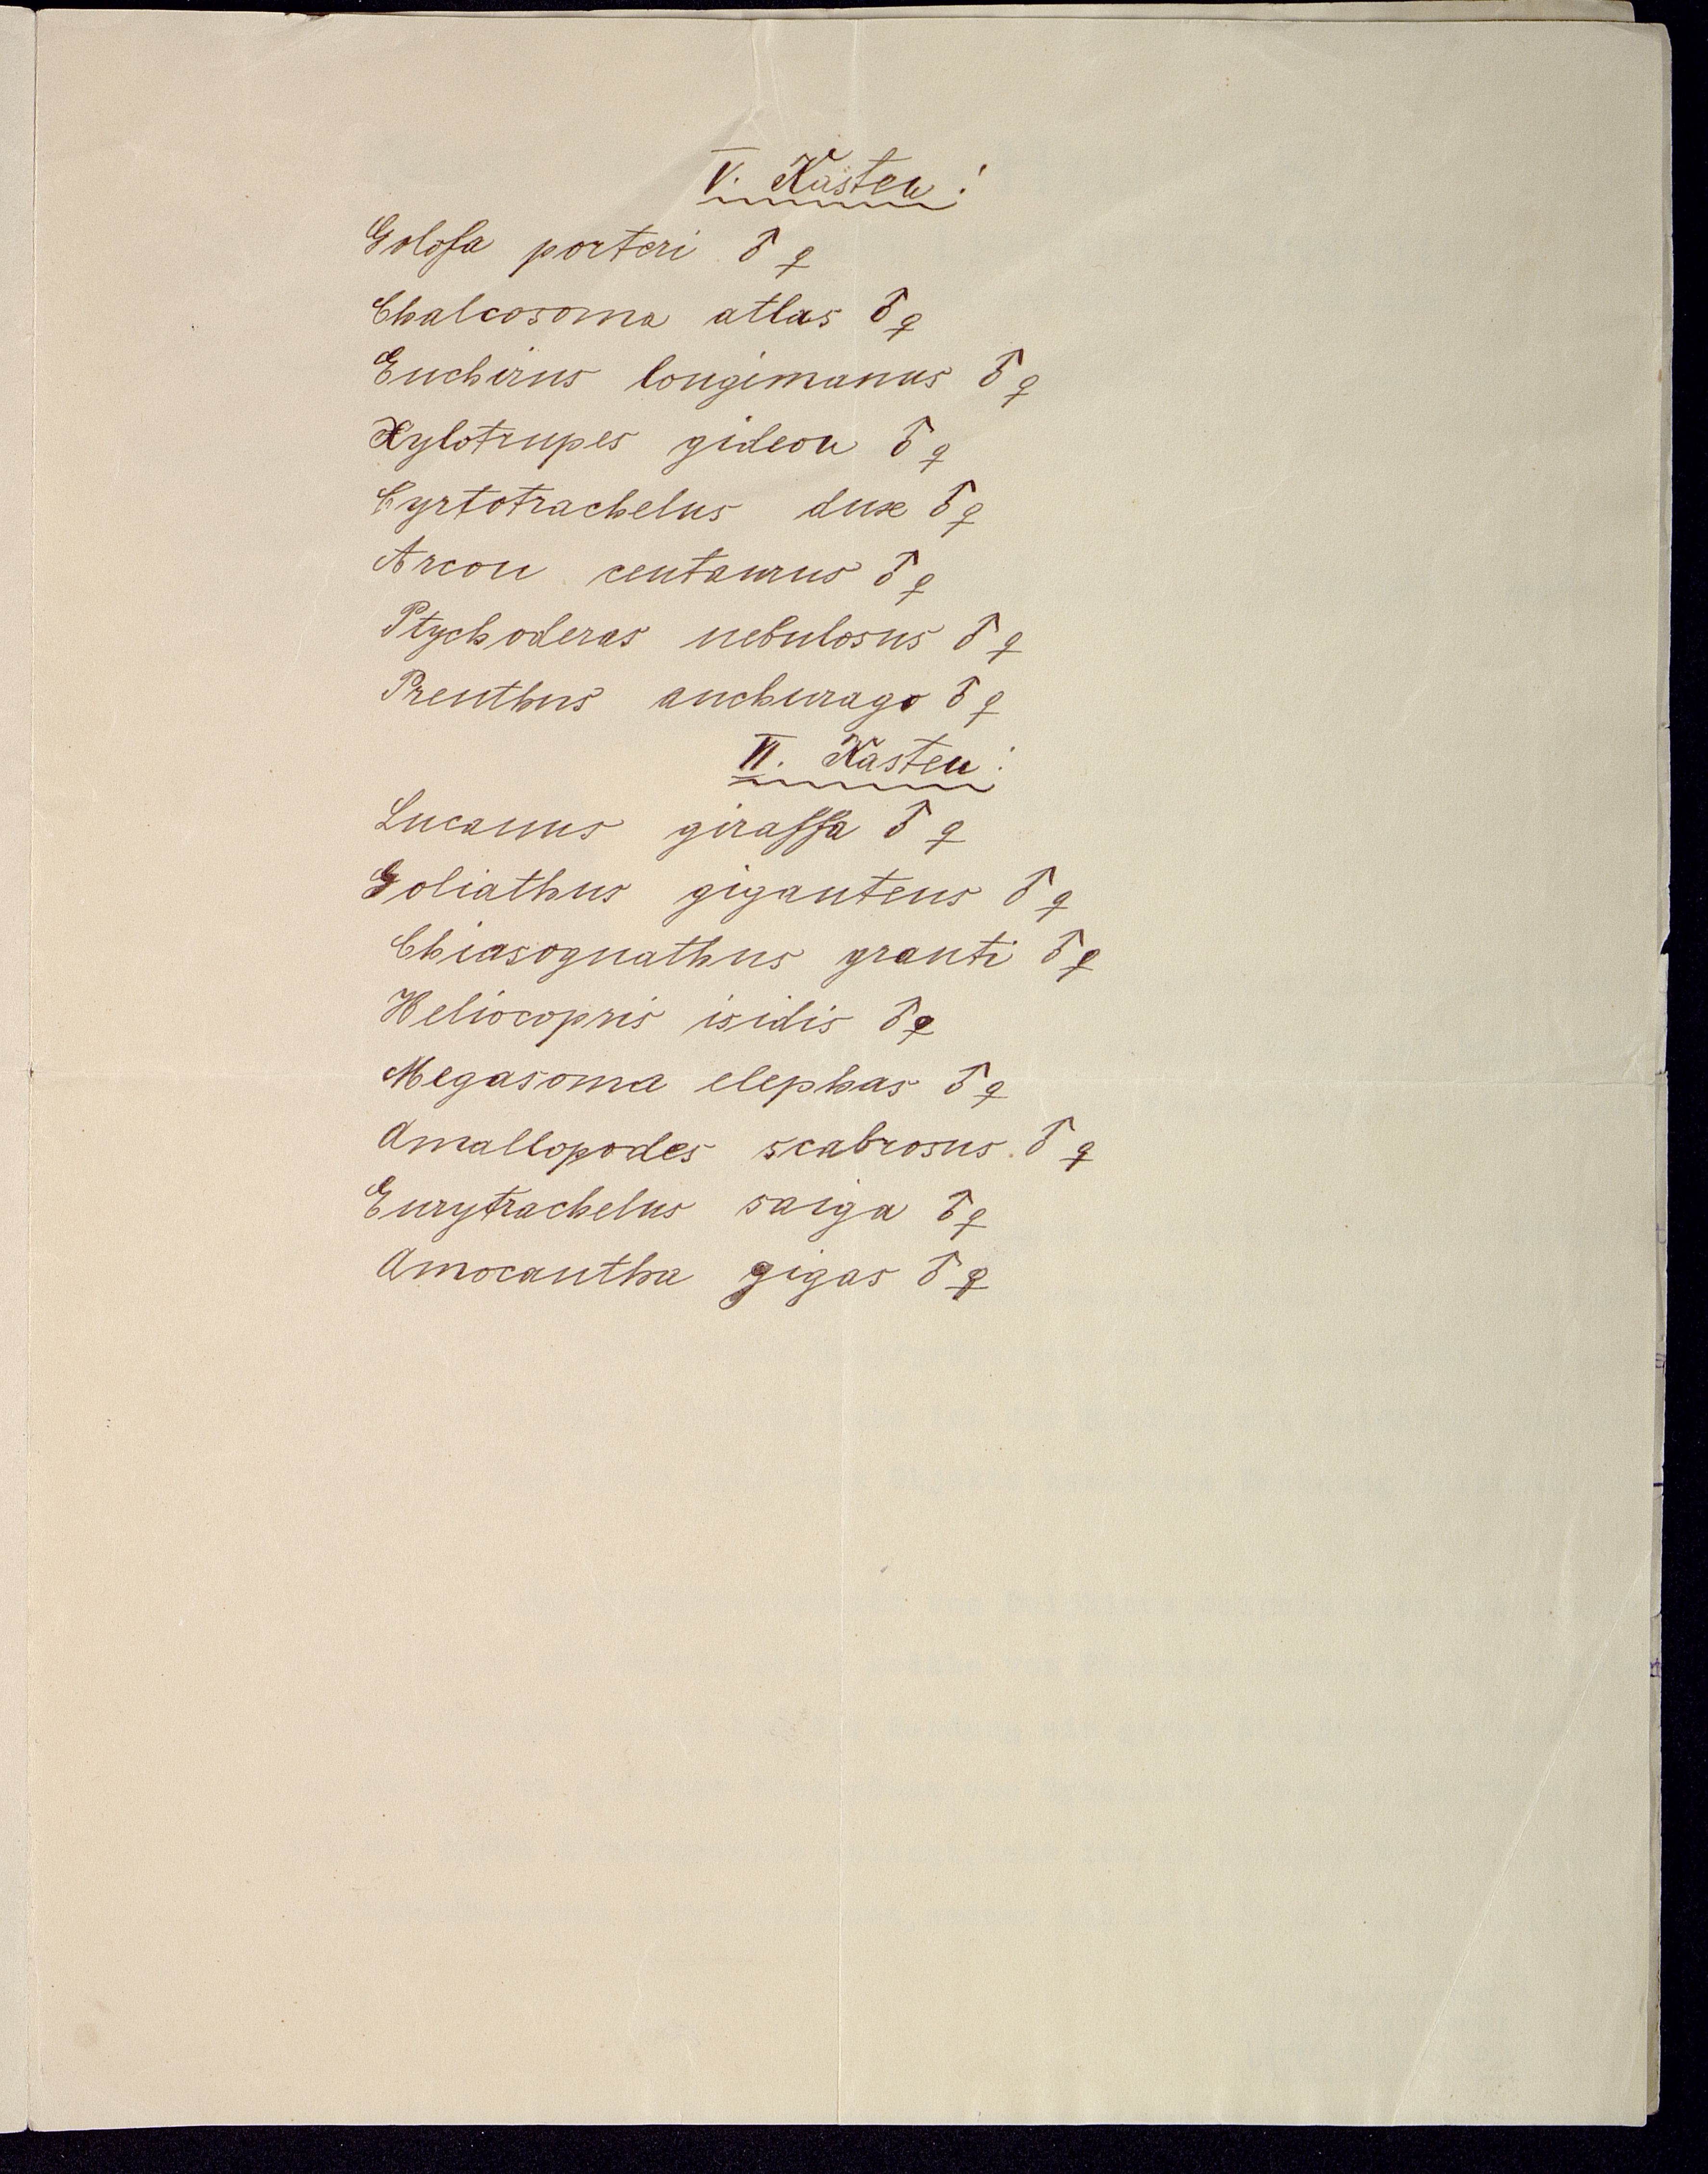 V. Kasten:
Golofa porteri ♂ ♀
Chalcosoma atlas ♂ ♀
Euchirus longimanus ♂ ♀
Xylotrupes gideon ♂ ♀
Cyrtotrachelus dux ♂ ♀
Arcon centaurus ♂ ♀
Ptychoderas nebulosus ♂ ♀
Prenthus anchurago ♂ ♀
VI. Kasten:
Lucanus giraffa ♂ ♀
Goliathus giganteus ♂ ♀
Chiasognathus granti ♂ ♀
Heliocopris isidis ♂ ♀
Megasoma elephas ♂ ♀
Amallopodes scabrosus. ♂ ♀
Eurytrachelus saiga ♂ ♀
Amocantha gigas ♂ ♀